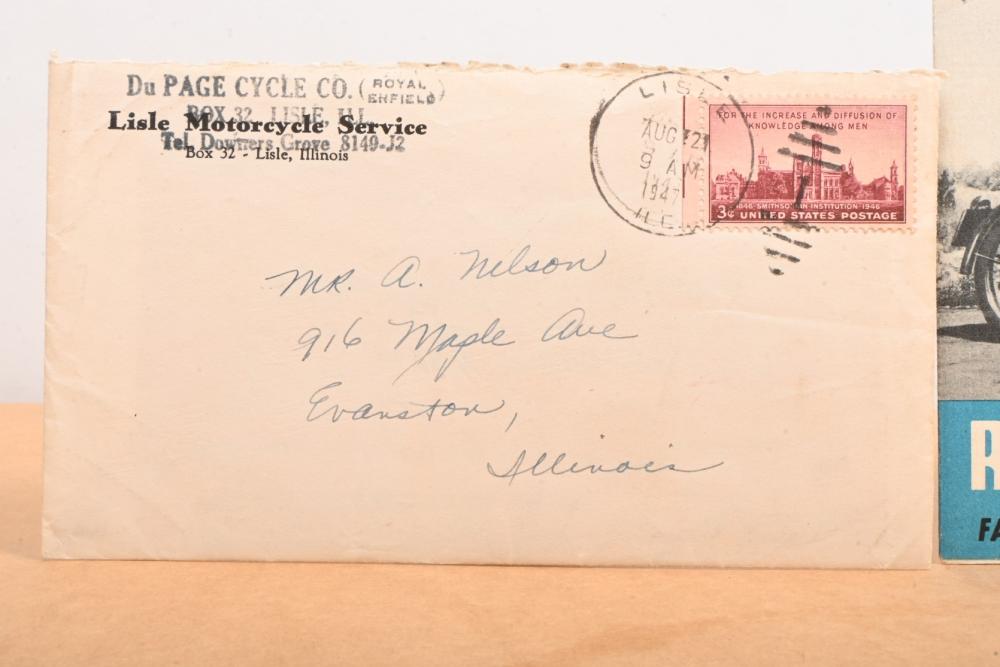 Du PAGE CYCLE CO. (ROYAL ENFIELD)
BOX 32 LISLE, ILL.
Lisle Motorcycle Service
Tel. Downers Grove 8149-J2
Box 32 - Lisle, Illinois
LISLE
AUG 21
9 AM
1947
ILL.
FOR THE INCREASE AND DIFFUSION OF
KNOWLEDGE AMONG MEN
1846 · SMITHSONIAN INSTITUTION · 1946
3¢ UNITED STATES POSTAGE
Mr. A. Nelson
916 Maple Ave
Evanston,
Illinois
R
FA